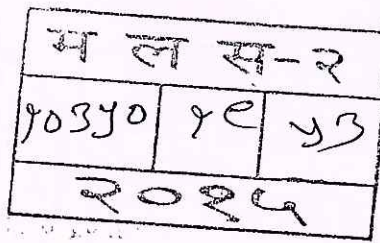 म ल स-२
१०३५० १९ ५३
२०१५